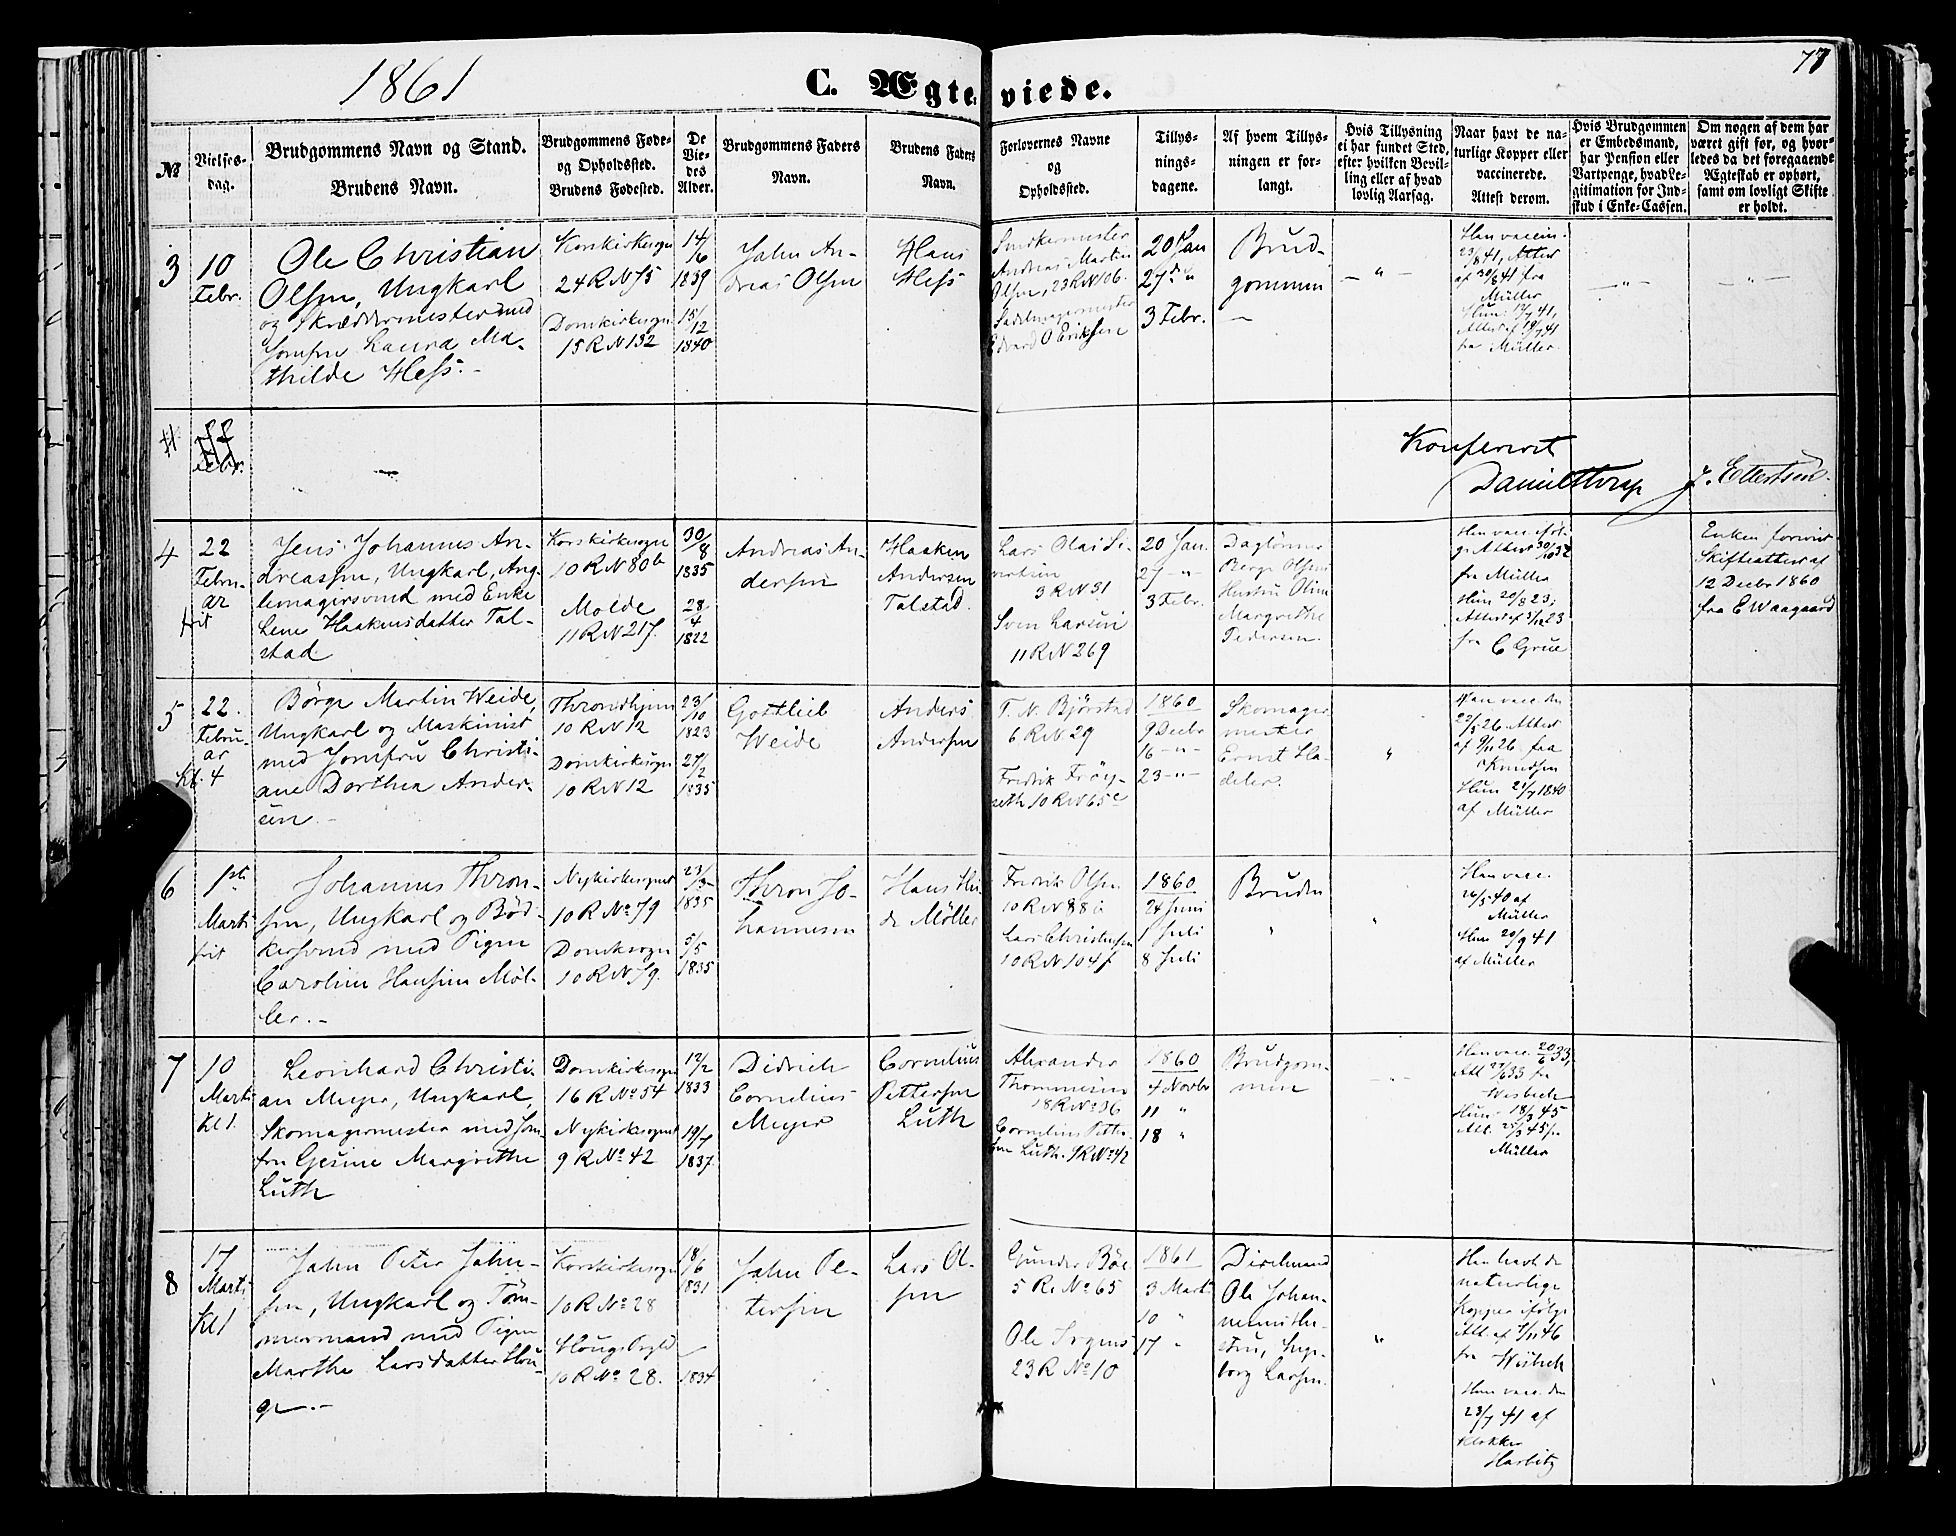 1861
C. Ægteviede.
77
№
Vielses-
dag.
Brudgommens Navn og Stand.
Brudens Navn.
Brudgommens Føde-
og Opholdssted.
Brudens Fødested.
De
Vie-
des
Alder.
Brudgommens Faders
Navn.
Brudens Faders
Navn.
Forlovernes Navne
og
Opholdssted.
Tillys-
nings-
dagene.
Af hvem Tillys-
ningen er for-
langt.
Hvis Tillysning
ei har fundet Sted,
efter hvilken Bevil-
ling eller af hvad
lovlig Aarsag.
Naar havt de na-
turlige Kopper eller
vaccinerede.
Attest derom.
Hvis Brudgommen
er Embedsmand,
har Pension eller
Vartpenge, hvad Le-
gitimation for Ind-
skud i Enke-Cassen.
Om nogen af dem har
været gift før, og hvor-
ledes da det foregaaende
Ægteskab er ophørt,
samt om lovligt Skifte
er holdt.
3
10
Febr.
Ole Christian
Olsen, Ungkarl
og Skræddermester med
Jomfru Laura Ma-
thilde Hess.-
Korskirkesogn
24 R N 75
Domkirkesogn
15 R N 132
14/6
1839
15/12
1840
Jahn An-
dreas Olsen
Hans
Hess
Snedkermester
Andreas Martin
Olsen, 23 R N 106.
Sadelmagermester
Edvard O Eriksen
20 Jan
27 d "
3 Febr.
Brud-
gommen
— " —
Han vaccin.
23/8 41, Attest
af 30/8 41 fra
Müller
Hun: 12/7 41,
Attest af 19/7 41
fra Müller.
— " —
— " —
Konfereret
Daniel Strap
J. Ellertsen.
4
22
Febru-
ar
frit
Jens Johannes An-
dreassen, Ungkarl, Ang-
lemagersvend med Enke
Lene Haakensdatter Tal-
stad
Korskirkesogn
10 R N 80b
Molde
11 R N 217.
30/8
1835
28/4
1822
Andreas An-
dersen
Haaken
Andersen
Talstad.
Lars Olai Si-
vertsen
3 R N 31
Sven Larsen
11 R N 269
20 Jan.
27 - " -
3 Febr.
Daglønner
Børge Olsens
Hustru Oline
Margrethe
Pedersen.
Han vacc. iføl-
ge Attest 30/10 32
fra Müller
Hun 20/8 23;
Attest af 31/12 23
fra C Grue
Enken forevist
Skifteattest af
12 Decbr 1860
fra E Waagaard
5
22.
Febru-
ar
Kl. 4
Børge Martin Weide,
Ungkarl og Maskinist
med Jomfru Christi-
ane Dorthea Ander-
sen.-
Throndhjem
10 R N 12
Domkirkesogn
10 R N 12
23/10
1823
27/2
1835
Gottlieb
Weide
Anders
Andersen
T. N. Bjørstad
6 R N 29
Fredrik Frøy-
seth 10 R N 65c
1860
9 Decbr
16 - " -
23 - " -
Skomager
mester
Ernst Ha-
deler.
"
Han vacc. den
22/5 26. Attest
af 9/11 26 fra
Knudsen
Hun 21/7 1840
af Müller
6
1ste
Marts
frit
Johannes Thron-
sen, Ungkarl og Bød-
kersvend med Pigen
Caroline Hansine Møl-
ler.-
Nykirkesognet
10 R No 79
Domksogn
10 R N 79.
23/3
1835
5/5
1835
Thron Jo-
hannesen
Hans Hei-
de Møller
Fredrik Olsen
10 R N 88
Lars Christensen
10 R N 104f
1860
24 Juni
1 Juli
8 Juli
Bruden
"
"
Han vacc.
26/5 40 af
Müller
Hun 20/9 41
af Müller
7
10
Marts
Kl 1.
Leonhard Christi-
an Meyer, Ungkarl,
Skomagermester med Jom-
fru Gesine Margrethe
Lüth
Domkirkesogn
16 R No 54
Nykirkesognet
9 R No 42
12/2
1833
19/7
1837.
Didrich
Cornelius
Meyer
Cornelius
Pettersen
Luth
Alexander
Thommesen
18 R No 36
Cornelius Petter-
sen Lüth. 9 R No 42
1860
4 Novbr
11 "
18 "
Brudgom-
men
- " -
Han vacc. 20/6 33,
Att 27/6 33 fra
Wisbech
Hun 18/3 45
Att. 25/3 45 fra
Müller
8
17
Marts
Kl 1
Jahn Peter Jahn-
sen, Ungkarl og Tøm-
mermand med Pigen
Marthe Larsdatter Hou-
ge.-
Korskirkesogn
10 R No 28
Hougs Prgld
10 R No 28.
18/6
1831
1834
Jahn Pe-
tersen
Lars Ol-
sen
Gunder Bøe
5 R. No 65
Ole Irgens
23 R No 10
1861
3 Mart
10 "
17 "
Diselmand
Ole Johan-
nesens Hu-
stru, Inge-
borg Larsen.
"
Han havt de
naturlige
Kopper ifølge
Att. af 7/11 46
fra Wisbech
Hun vacc. den
23/7 41 af
Klokker
Harbitz